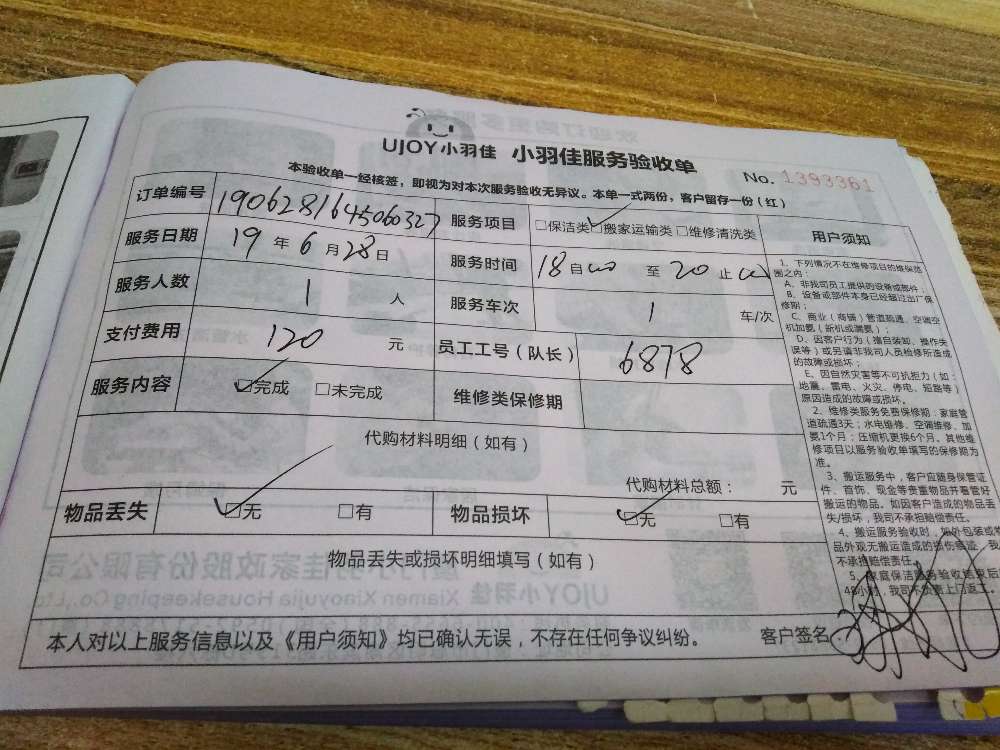 UJOY小羽佳 小羽佳服务验收单
No. 1393361
本验收单一经核签，即视为对本次服务验收无异议。本单一式两份，客户留存一份（红）
订单编号 1906281645060327 服务项目 □保洁类 ☑搬家运输类 □维修清洗类
服务日期 19 年 6 月 28 日 服务时间 18 自 00 至 20 止 00
服务人数 1 人 服务车次 1 车/次
支付费用 120 元 员工工号（队长） 6878
服务内容 ☑完成 □未完成 维修类保修期
代购材料明细（如有）
代购材料总额： 元
物品丢失 ☑无 □有 物品损坏 ☑无 □有
物品丢失或损坏明细填写（如有）
本人对以上服务信息以及《用户须知》均已确认无误，不存在任何争议纠纷。 客户签名
用户须知
1、下列情况不在维修项目的维保范
围之内：
A、非我司员工提供的设备或部件；
B、设备或部件本身已经超过出厂保
修期；
C、商业（商铺）管道疏通、空调空
机加氨（新机或漏氨）；
D、因客户行为（擅自装卸、操作失
误等）或另请非我司人员检修所造成
的故障或损坏；
E、因自然灾害等不可抗拒力（如：
地震、雷电、火灾、停电、短路等）
原因造成的故障或损坏。
2、维修类服务免费保修期：家庭管
道疏通3天；水电维修、空调维修、加
氨1个月；压缩机更换6个月。其他维
修项目以服务验收单填写的保修期为
准。
3、搬运服务中，客户应随身保管证
件、首饰、现金等贵重物品并看管好
搬运的物品。如因客户造成的物品丢
失/损坏，我司不承担赔偿责任。
4、搬运服务验收时，如外包装或物
品外观无搬运造成的损伤痕迹，我
不承担赔偿责任。
5、家庭保洁服务验收结束后
48小时，我司不负责上门返工。